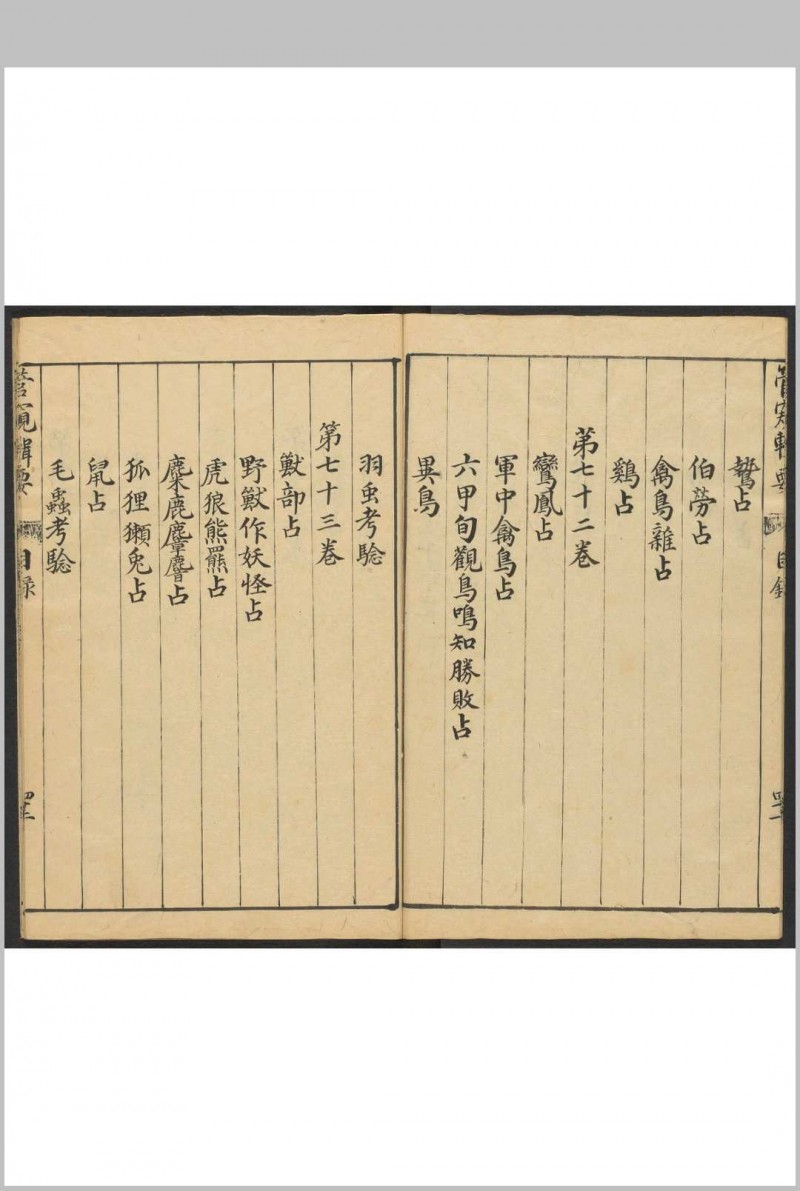 管窺輯要
目録
鷙占
伯勞占
禽鳥雜占
鷄占
第七十二巻
鸞鳳占
軍中禽鳥占
六甲旬觀鳥鳴知勝敗占
異鳥
羽虫考騐
第七十三巻
獸部占
野獸作妖怪占
虎狼熊羆占
麋鹿麞麐占
狐狸獺兔占
鼠占
毛蟲考騐
管窺輯要
目録